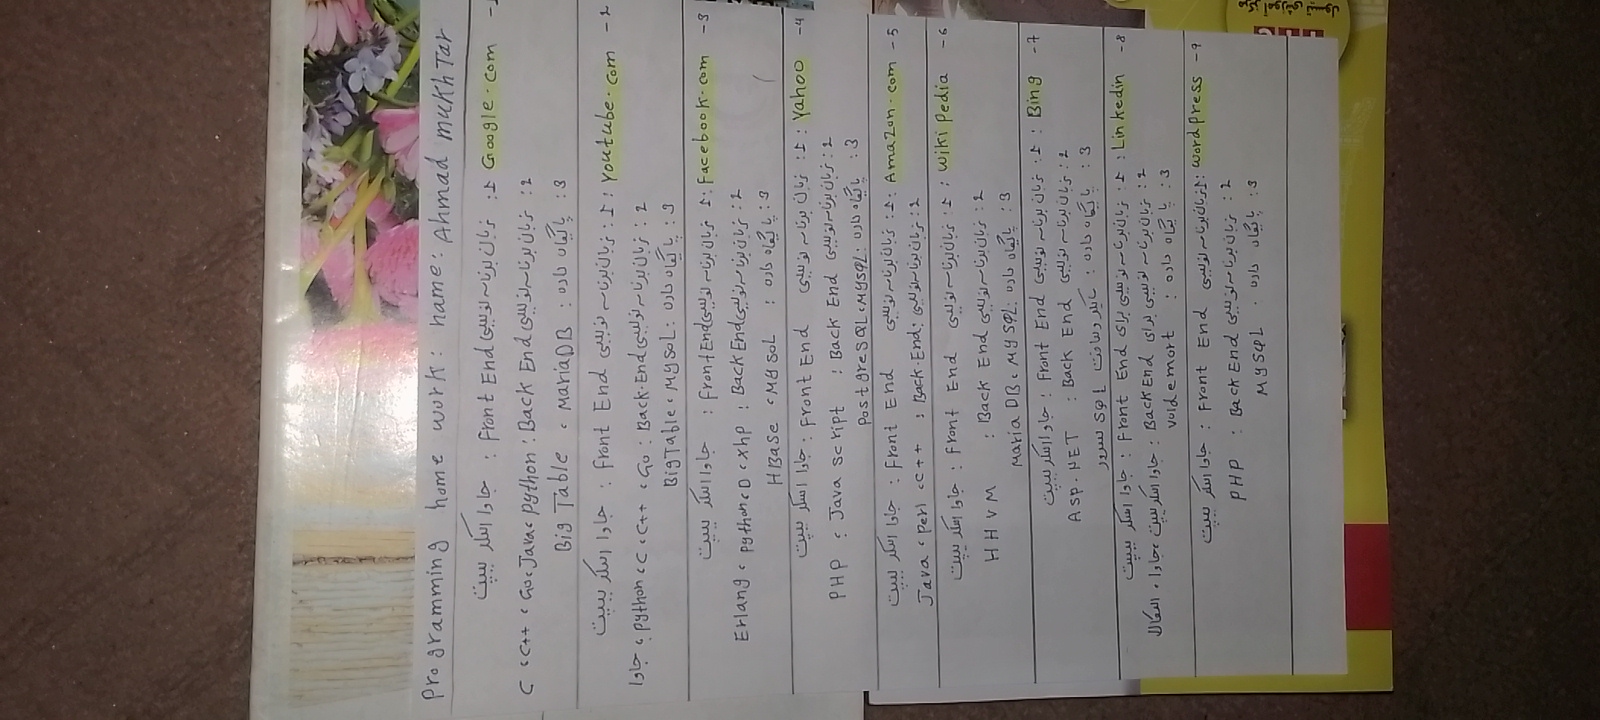 Programming home work: name: Ahmad mukhtar
1- Google.com 1: زبان برنامه نویسی Front End: جاوا اسکریپت
2: زبان برنامه نویسی Back End: C، C++، Go، Java، python
3: پایگاه داده: Big Table، MariaDB
2- Youtube.com: 1: زبان برنامه نویسی Front End: جاوا اسکریپت
2: زبان برنامه نویسی Back End: Go، C++، C، python، جاوا
3: پایگاه داده: BigTable، MySQL
3- Facebook.com: 1: زبان برنامه نویسی Front End: جاوا اسکریپت
2: زبان برنامه نویسی Back End: Erlang، python، D، xhp
3: پایگاه داده: HBase، MySQL
4- Yahoo: 1: زبان برنامه نویسی Front End: جاوا اسکریپت
2: زبان برنامه نویسی Back End: PHP، Java script
3: پایگاه داده: PostgreSQL، MYSQL
5- Amazon.com: 1: زبان برنامه نویسی Front End: جاوا اسکریپت
2: زبان برنامه نویسی Back End: Java، perl، C++
6- Wikipedia: 1: زبان برنامه نویسی Front End: جاوا اسکریپت
2: زبان برنامه نویسی Back End: HHVM
3: پایگاه داده: MariaDB، MYSQL
7- Bing: 1: زبان برنامه نویسی Front End: جاوا اسکریپت
2: زبان برنامه نویسی Back End: ASP.NET
3: پایگاه داده: مایکروسافت SQL سرور
8- Linkedin: 1: زبان برنامه نویسی برای Front End: جاوا اسکریپت
2: زبان برنامه نویسی برای Back End: جاوا اسکریپت، جاوا، اسکالا
3: پایگاه داده: voldemort
9- wordpress: 1: زبان برنامه نویسی Front End: جاوا اسکریپت
2: زبان برنامه نویسی Back End: PHP
3: پایگاه داده: MySQL